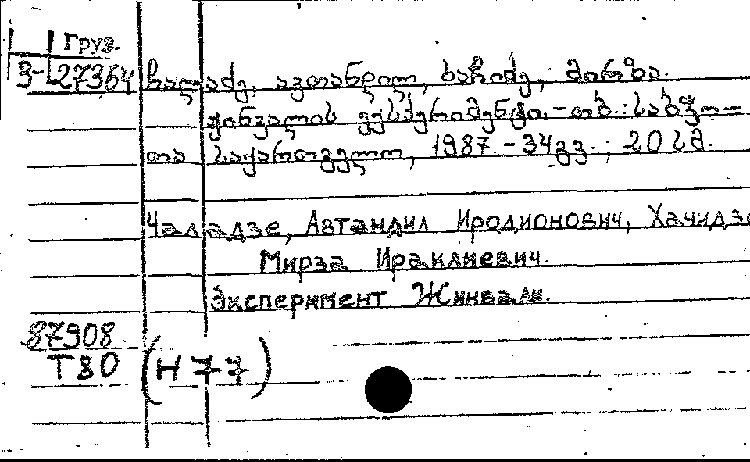 Груз.
3-27364 ჩალაძე, ავთანდილ, ხაჩიძე, მირზა.
ჟინვალის ექსპერიმენტი.-თბ.: საბჭო-
თა საქართველო, 1987.-34გვ.; 20 სმ.
Чаладзе, Автандил Иродионович, Хачидзе
Мирза Ираклиевич.
Эксперимент Жинвали.
87908
Т80 (Н77)